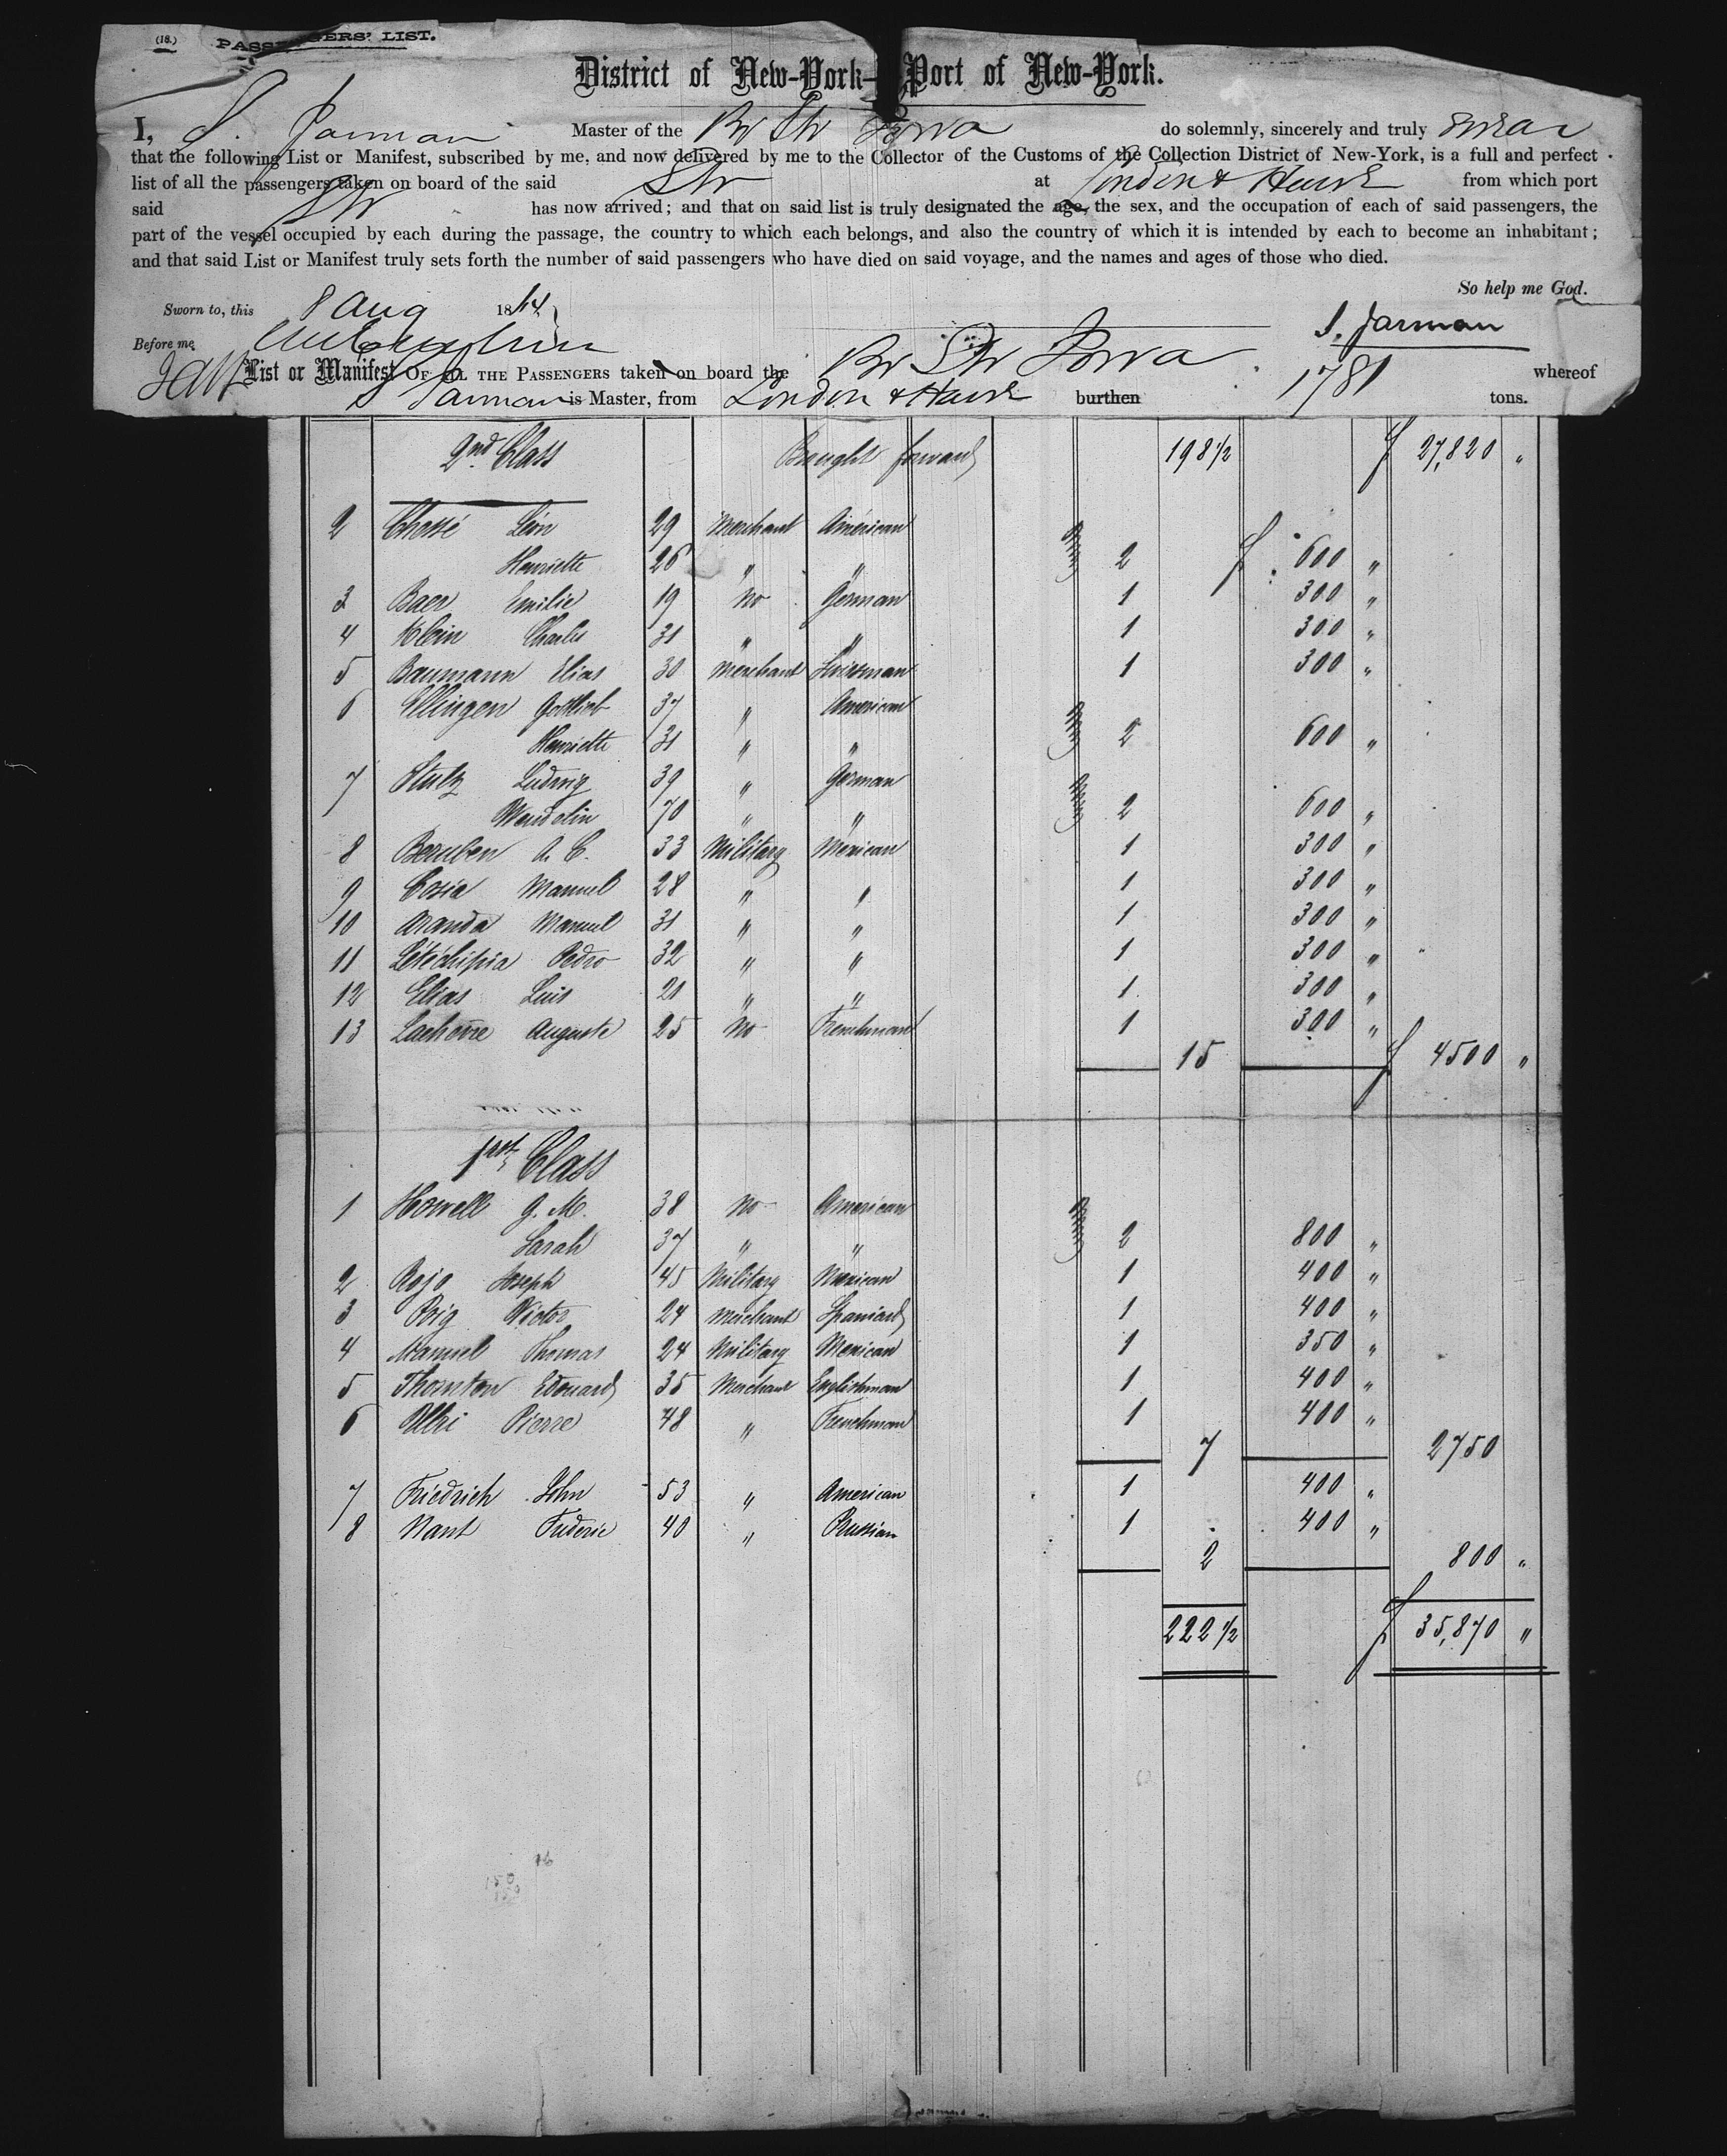 (18.) PASSENGERS' LIST.
District of New-York—Port of New-York.
I, S. Jarman Master of the Br Str Iowa do solemnly, sincerely and truly swear
that the following List or Manifest, subscribed by me, and now delivered by me to the Collector of the Customs of the Collection District of New-York, is a full and perfect
list of all the passengers taken on board of the said Str at London & Havre from which port
said Str has now arrived; and that on said list is truly designated the age, the sex, and the occupation of each of said passengers, the
part of the vessel occupied by each during the passage, the country to which each belongs, and also the country of which it is intended by each to become an inhabitant;
and that said List or Manifest truly sets forth the number of said passengers who have died on said voyage, and the names and ages of those who died.
So help me God.
Sworn to, this 8 Aug 1864
S. Jarman
Before me
List or Manifest OF ALL THE PASSENGERS taken on board the Br Str Iowa whereof
S Jarman is Master, from London & Havre burthen 1781 tons.
2nd Class Brought forward 198 1/2 f 27,820 "
2 Chossé Léon 29 Merchant American
Henriette 26 " " 2 f 600 "
3 Baer Emilie 19 no German 1 300 "
4 Klein Charles 31 " " 1 300 "
5 Baumann Elias 30 Merchant Swissman 1 300 "
6 Ellingen Gottlieb 37 " American
Henriette 31 " " 2 600 "
7 Stulz Ludwig 39 " German
Wendelin 70 " " 2 600 "
8 Beruben A. C. 33 Military Mexican 1 300 "
9 Cosia Manuel 28 " " 1 300 "
10 Aranda Manuel 31 " " 1 300 "
11 Letechipia Pedro 32 " " 1 300 "
12 Elias Luis 21 " " 1 300 "
13 Auguste 25 no Frenchman 1 300 "
15 f 4500 "
1rst Class
1 Howell G. M. 38 no American
Sarah 37 " " 2 800 "
2 Rojo Joseph 45 Military Mexican 1 400 "
3 Roig Victor 24 Merchant Spaniard 1 400 "
4 Manuel Thomas 24 Military Mexican 1 350 "
5 Thornton Edouard 35 Merchant Englishman 1 400 "
6 Pierre 48 " Frenchman 1 400 "
7 2750
7 Friedrich John 53 " American 1 400 "
8 Nant Frederic 40 " Russian 1 400 "
2 800 "
222 1/2 f 35,870 "
16
150
150